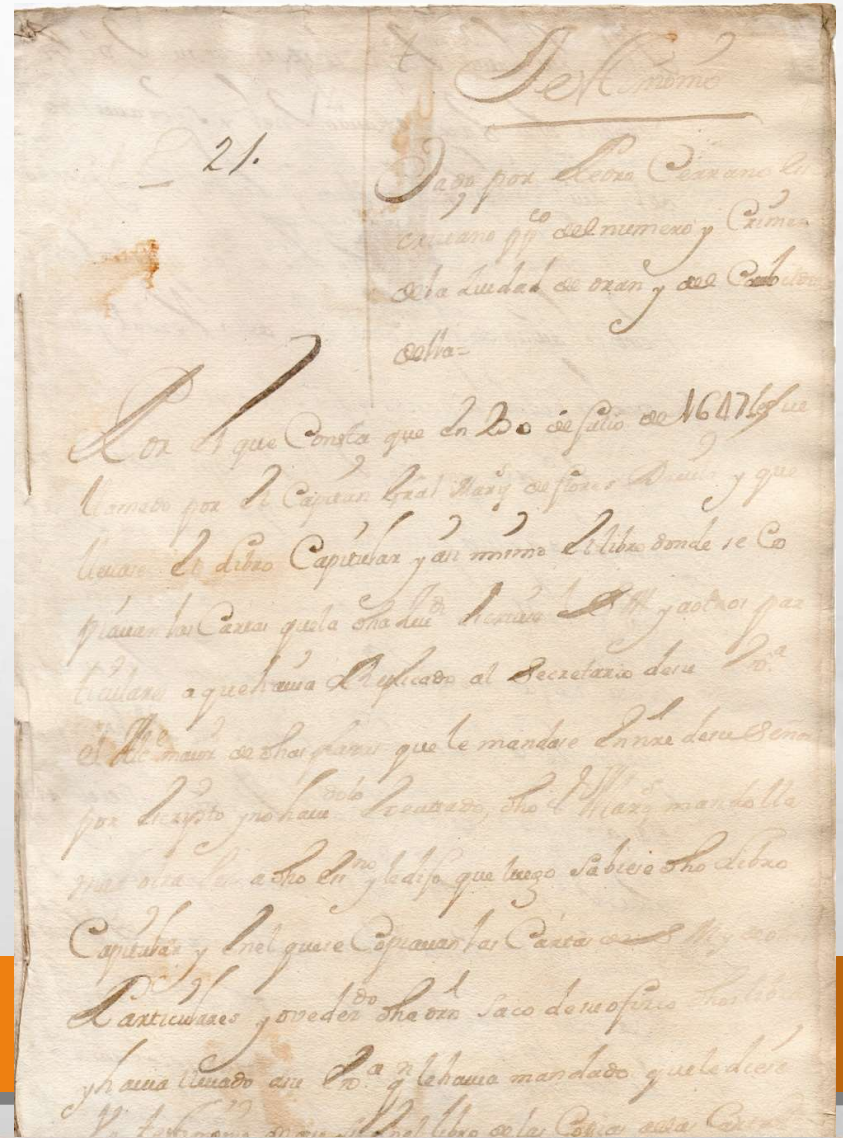 Testimonio
21.
Dado por Pedro Cerrano es
criuano pp.co del numero y Crimen
de la Ciudad de oran y del Cabildo
della=
Por el que Consta que en 20 de Julio de 1647 fue
llamado por el Capitan Gral Marq de flores Dauila y que
lleuase el Libro Capitular y asi mismo el libro donde se Co
piauan las Cartas que la dha Ciud escriuia y a otros par
ticulares a que hauia Replicado al Secretario de su
el mayor de dhas que le mandase en nre de su Señoria
por escripto y no hauiendolo executado, dho Marq mando lla
mar otra a dho essno y le dijo que luego dho Libro
Capitular y en el que se Copiauan las Cartas de S Mg
Particulares y ovededdo dha orn saco de su oficio dhos lib
y hauia lleuado a su q le hauia mandado que le diese
testimonio en el libro de las Copias de las Cartas